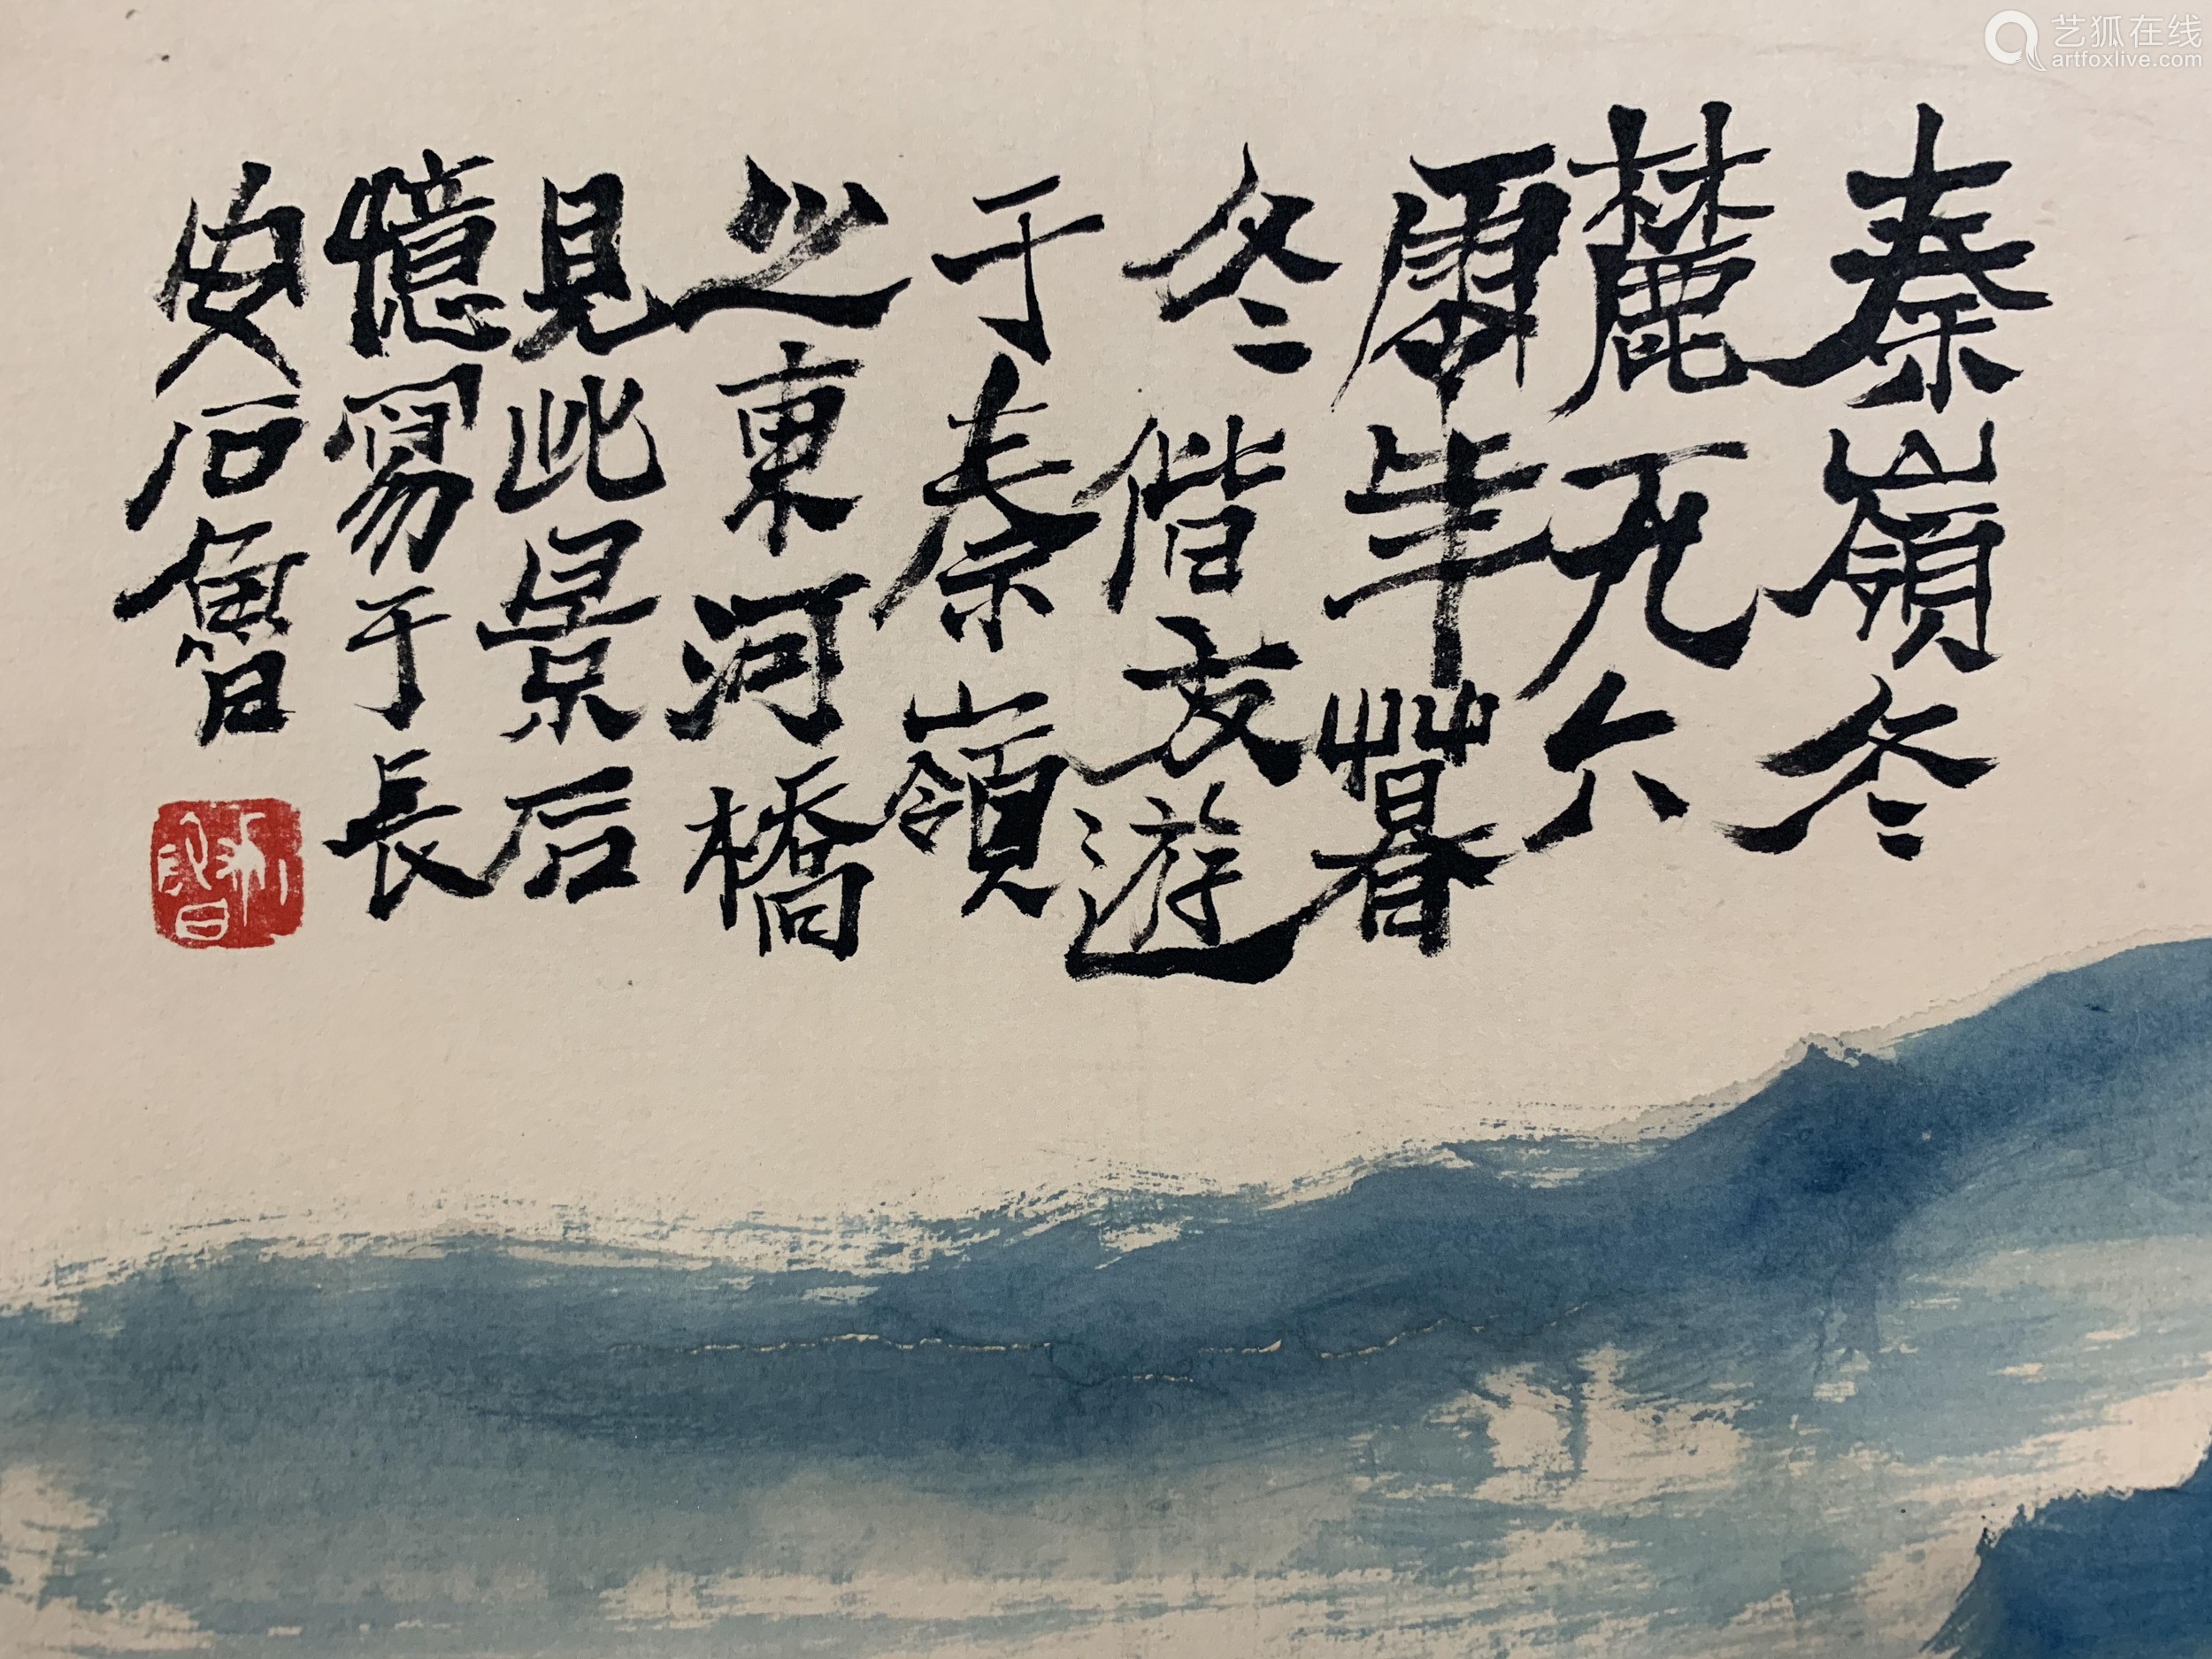 艺狐在线
artfoxlive.com
秦嶺冬
麓六
年暮
冬偕友遊
于秦嶺
之東河橋
見此景后
憶寫于長
安石魯